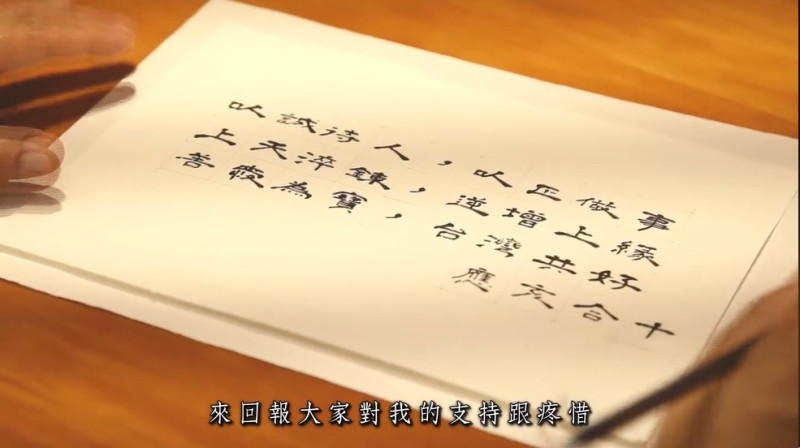 以誠待人，以正做事
上天淬鍊，逆增上緣
善為寶，台灣共好
應亥合十
來回報大家對我的支持跟疼惜